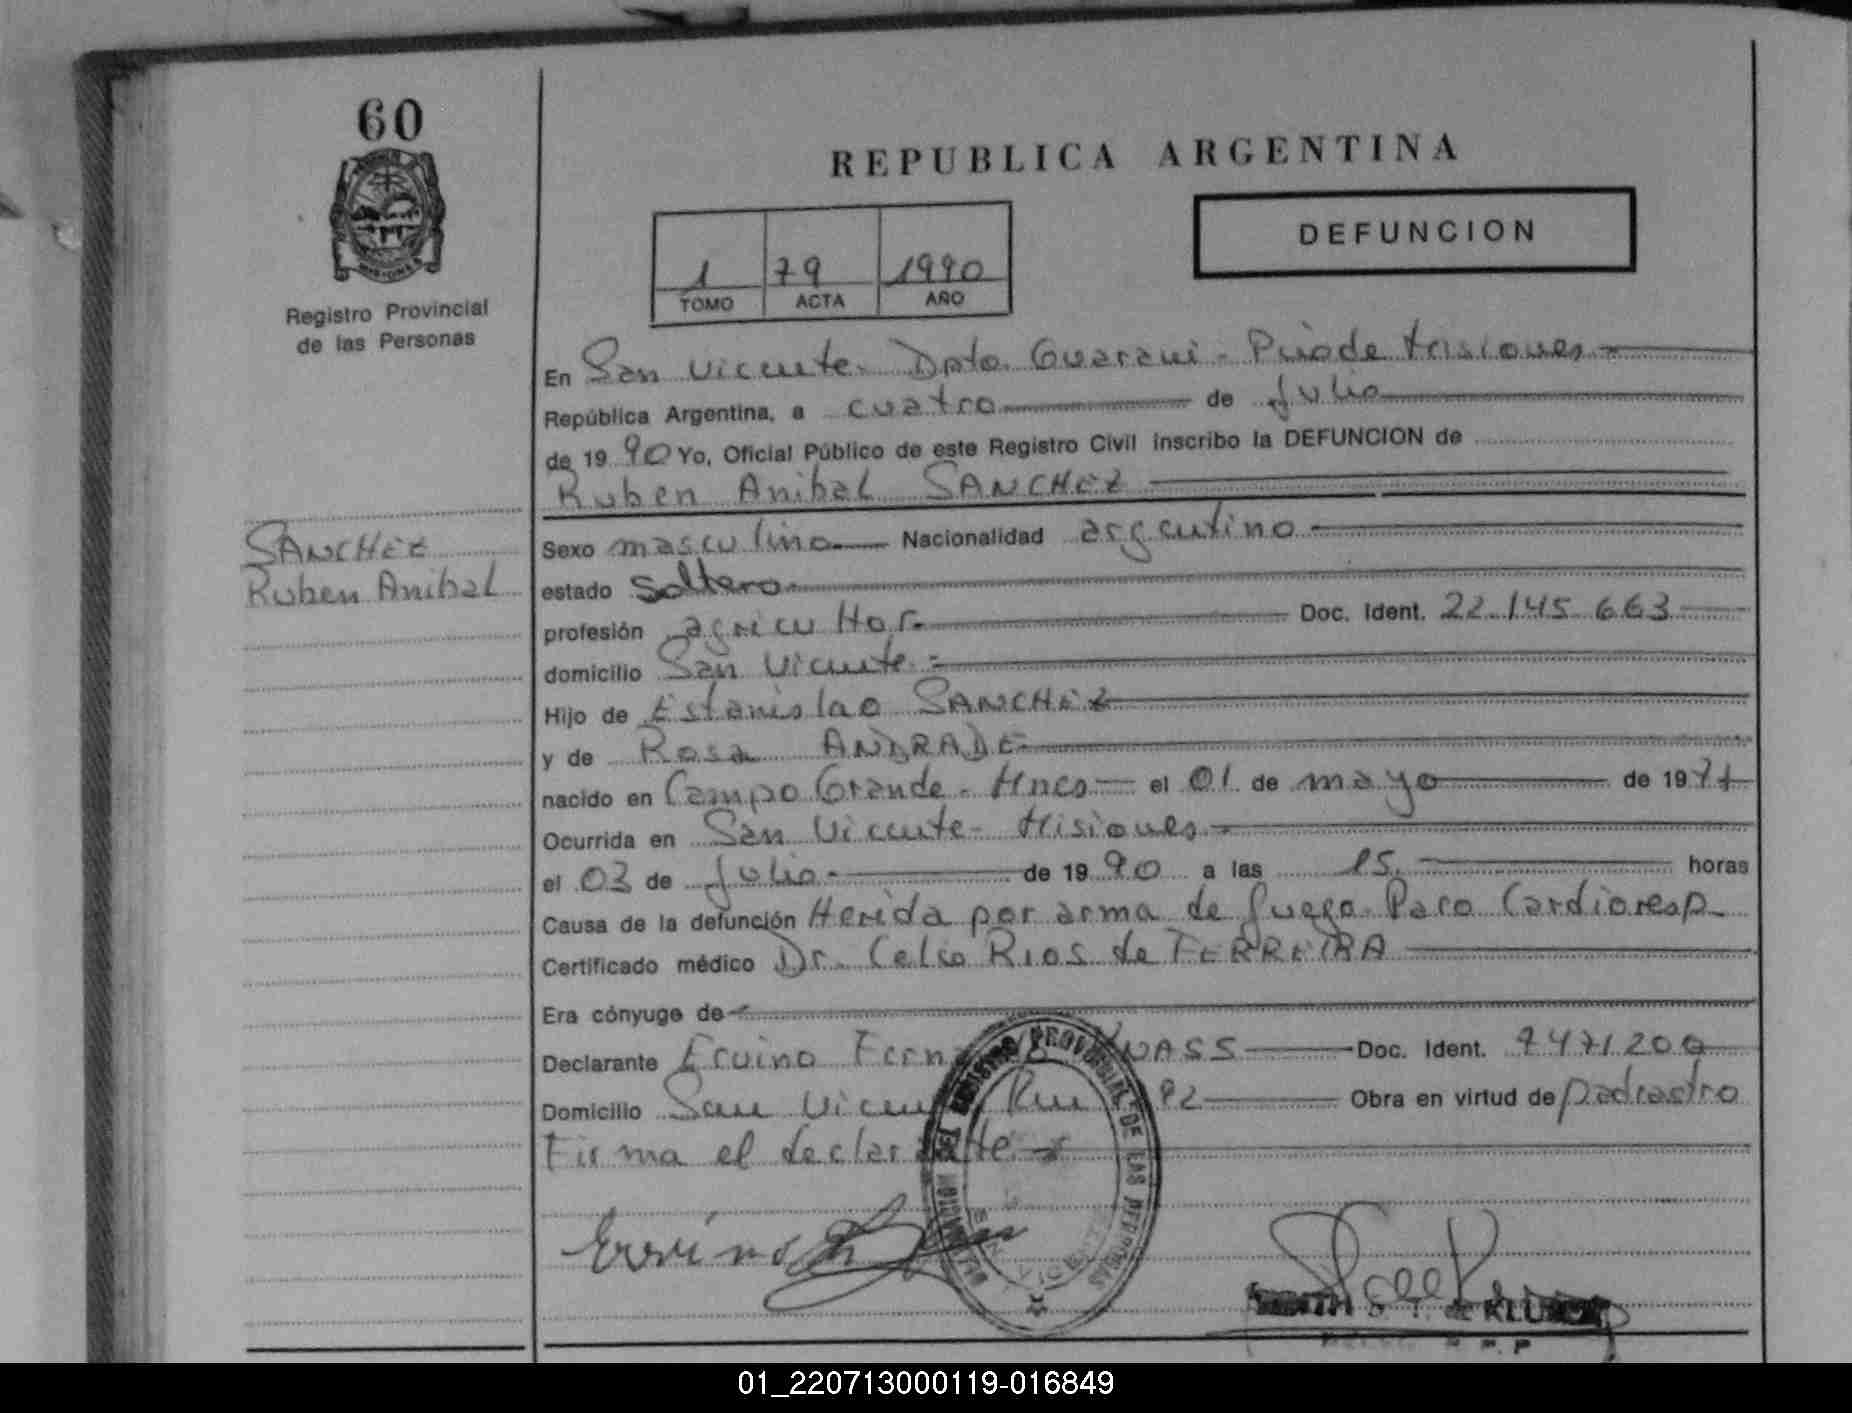 60
MISIONES
Registro Provincial
de las Personas
SANCHEZ
Ruben Anibal
REPUBLICA ARGENTINA
DEFUNCION
1 79 1990
TOMO ACTA AÑO
En San Vicente. Dpto. Guarani - Pciade Misiones
República Argentina, a cuatro de Julio
de 1990 Yo, Oficial Público de este Registro Civil inscribo la DEFUNCION de
Ruben Anibal SANCHEZ
Sexo masculino Nacionalidad argentino
estado Soltero
profesión agricultor. Doc. Ident. 22.145.663
domicilio San Vicente
Hijo de Estanislao SANCHEZ
y de Rosa ANDRADE
nacido en Campo Grande - Mnes el 01 de mayo de 1971
Ocurrida en San Vicente - Misiones
el 03 de Julio de 1990 a las 15. horas
Causa de la defunción Herida por arma de fuego. Paro Cardioresp.
Certificado médico Dr. Celso Rios de FERREIRA
Era cónyuge de
Declarante Ervino KUASS Doc. Ident. 7471200
Domicilio San Vicente Obra en virtud de padrastro
Firma el declarante
REGISTRO PROVINCIAL DE LAS PERSONAS
SAN VICENTE
Ervino
01_220713000119-016849